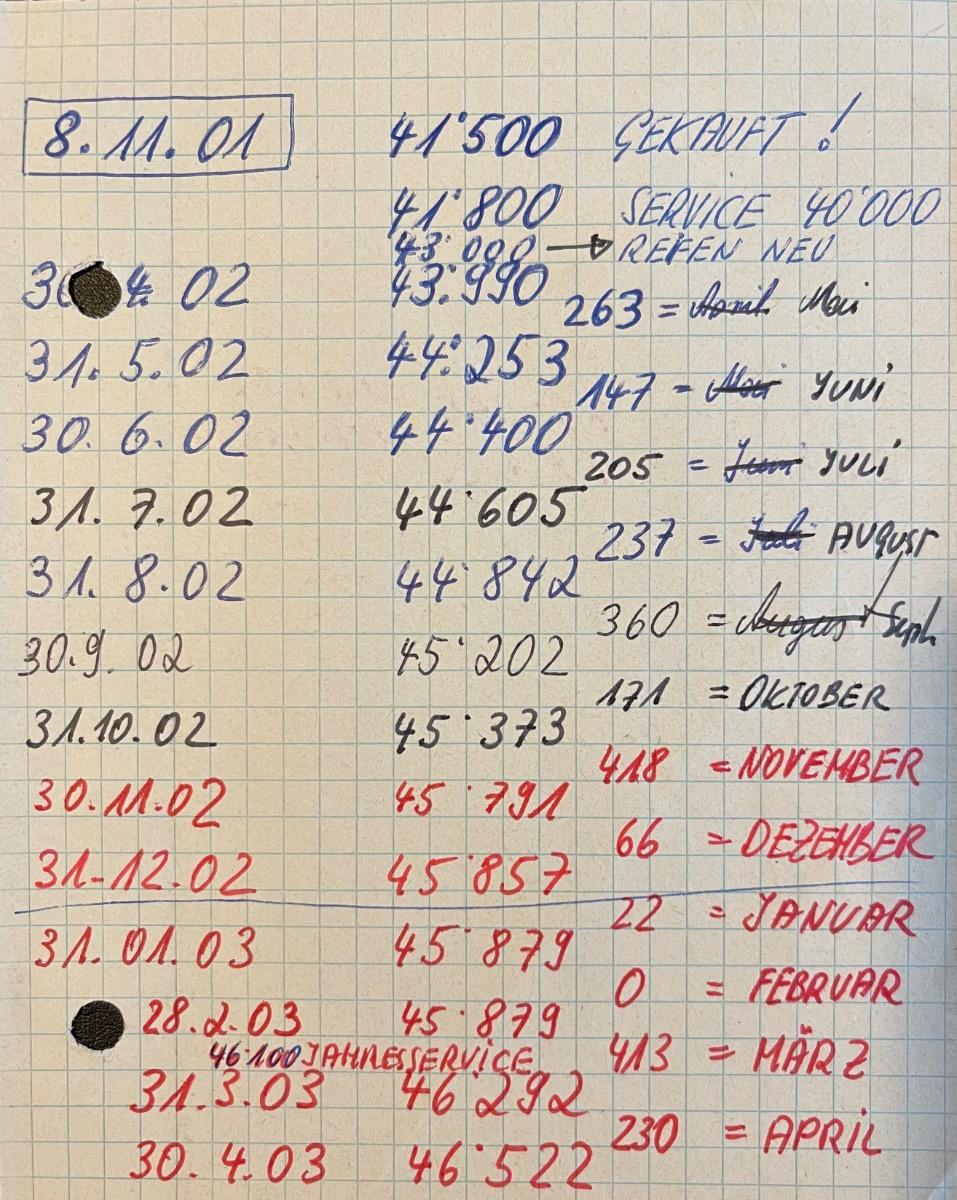 8.11.01 41'500 GEKAUFT!
41'800 SERVICE 40'000
43'000 → REIFEN NEU
30.4. 02 43'990
263 = April Mai
31. 5. 02 44'253
147 = Mai JUNI
30. 6. 02 44'400
205 = Juni JULI
31. 7. 02 44'605
237 = Juli AUGUST
31. 8. 02 44'842
360 = August Sept.
30.9. 02 45'202
171 = OKTOBER
31.10.02 45'373
418 = NOVEMBER
30.11.02 45'791
66 = DEZEMBER
31-12.02 45'857
22 = JANUAR
31. 01. 03 45'879
0 = FEBRUAR
28.2.03 45'879
46'100 JAHRESSERVICE 413 = MÄRZ
31.3.03 46'292
230 = APRIL
30. 4. 03 46'522